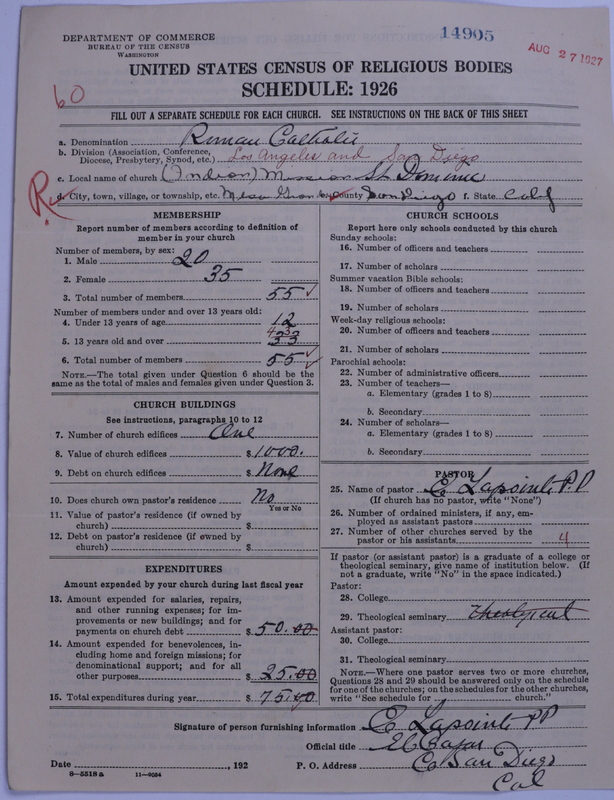 DEPARTMENT OF COMMERCE
BUREAU OF THE CENSUS
WASHINGTON
14905
AUG 27 1927
UNITED STATES CENSUS OF RELIGIOUS BODIES
SCHEDULE: 1926
60
FILL OUT A SEPARATE SCHEDULE FOR EACH CHURCH. SEE INSTRUCTIONS ON THE BACK OF THIS SHEET
a. Denomination Roman Catholic
b. Division (Association, Conference,
Diocese, Presbytery, Synod, etc.) Los Angeles and San Diego
c. Local name of church (Indian) Mission St Dominic
d. City, town, village, or township, etc. Mesa Grande County San Diego f. State Calif
MEMBERSHIP
Report number of members according to definition of
member in your church
Number of members, by sex:
1. Male 20
2. Female 35
3. Total number of members 55
Number of members under and over 13 years old:
4. Under 13 years of age 12
5. 13 years old and over 43
6. Total number of members 55
NOTE.—The total given under Question 6 should be
same as the total of males and females given under Question 3.
CHURCH BUILDINGS
See instructions, paragraphs 10 to 12
7. Number of church edifices One
8. Value of church edifices $ 1000.
9. Debt on church edifices $ None
10. Does church own pastor's residence No
Yes or No
11. Value of pastor's residence (if owned by
church) $
12. Debt on pastor's residence (if owned by
church) $
EXPENDITURES
Amount expended by your church during last fiscal year
13. Amount expended for salaries, repairs,
and other running expenses; for im-
provements or new buildings; and for
payments on church debt $ 50.00
14. Amount expended for benevolences, in-
cluding home and foreign missions; for
denominational support; and for all
other purposes $ 25.00
15. Total expenditures during year $ 75.00
CHURCH SCHOOLS
Report here only schools conducted by this church
Sunday schools:
16. Number of officers and teachers
17. Number of scholars
Summer vacation Bible schools:
18. Number of officers and teachers
19. Number of scholars
Week-day religious schools:
20. Number of officers and teachers
21. Number of scholars
Parochial schools:
22. Number of administrative officers
23. Number of teachers—
a. Elementary (grades 1 to 8)
b. Secondary
24. Number of scholars—
a. Elementary (grades 1 to 8)
b. Secondary
PASTOR
25. Name of pastor Lapointe P.P
(If church has no pastor, write "None")
26. Number of ordained ministers, if any, em-
ployed as assistant pastors
27. Number of other churches served by the
pastor or his assistants 4
If pastor (or assistant pastor) is a graduate of a college or
theological seminary, give name of institution below. (If
not a graduate, write "No" in the space indicated.)
Pastor:
28. College
29. Theological seminary
Assistant pastor:
30. College
31. Theological seminary
NOTE.—Where one pastor serves two or more churches,
Questions 28 and 29 should be answered only on the schedule
for one of the churches; on the schedules for the other churches,
write "See schedule for church."
Signature of person furnishing information Lapointe PP
Official title El Cajon
Date , 192 P. O. Address Co San Diego
Cal
8—5518a 11—9084